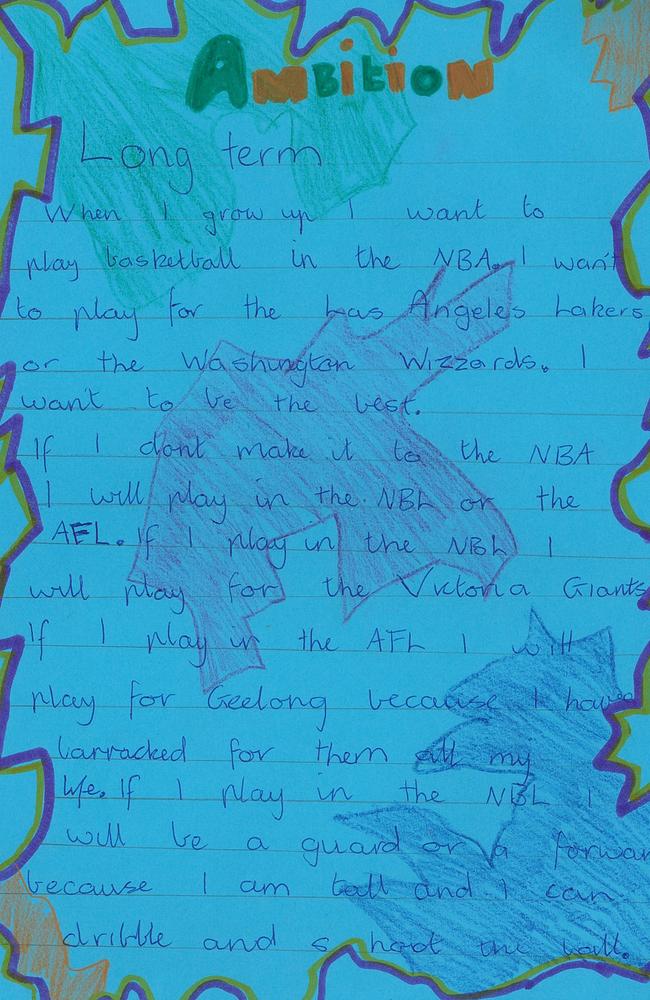 AmBitioN
Long term
When I grow up I want to
play basketball in the NBA. I want
to play for the Las Angeles Lakers
or the Washington Wizzards. I
want to be the best.
If I dont make it to the NBA
I will play in the NBL or the
AFL. If I play in the NBL I
will play for the Victoria Giants
If I play in the AFL I will
play for Geelong because I have
barracked for them all my
life. If I play in the NBL I
will be a guard or a forwar
because I am tall and I can
dribble and shoot the ball.